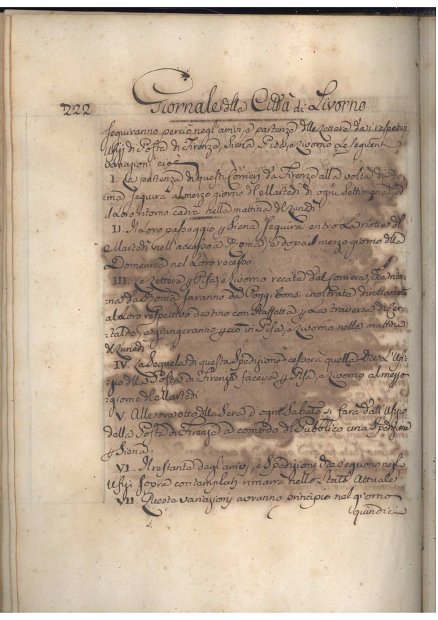 222 Giornale della Città di Livorno
seguiranno perciò negl'arrivi e partenze delle Lettere da i respettivi
Ufizj di Posta di Firenze, Siena, Pisa, e Livorno le seguenti
variazioni cioè
I. La partenza di questi Corrieri da Firenze alla volta di Roma
seguirà al mezzo giorno del Martedì di ogni Settimana, ed
il loro ritorno cadrà nella mattina di Lunedì.
II. Il loro passaggio p Siena seguirà entro la notte del
Martedì nell'accesso a Roma, e dopo il mezzo giorno della
Domenica nel Loro recesso.
III. Le Lettere p Pisa, e Livorno recate dal Corriere, che
da Roma saranno da Poggibonsi inoltrate direttamente
al Loro respettivo destino con Staffetta p La traversa di
e giungeranno in Pisa, e Livorno nella mattina
di Lunedì
IV. La Sequela di questa Spedizione cesserà quella che l'Ufizio
della Posta di Firenze faceva p Pisa, e Livorno al mezzo
giorno del Martedì.
V. Alle ore otto della Sera d'ogni Sabato si farà dall'Ufizio
della Posta di Firenze a comodo del Pubblico una Spedizione
p Siena.
VI. Il restante degl'arrivi, e Spedizioni che seguono negl'
Ufizj sopra contemplati rimane nello Stato Attuale
VII. Queste variazioni avranno principio nel giorno
quindici